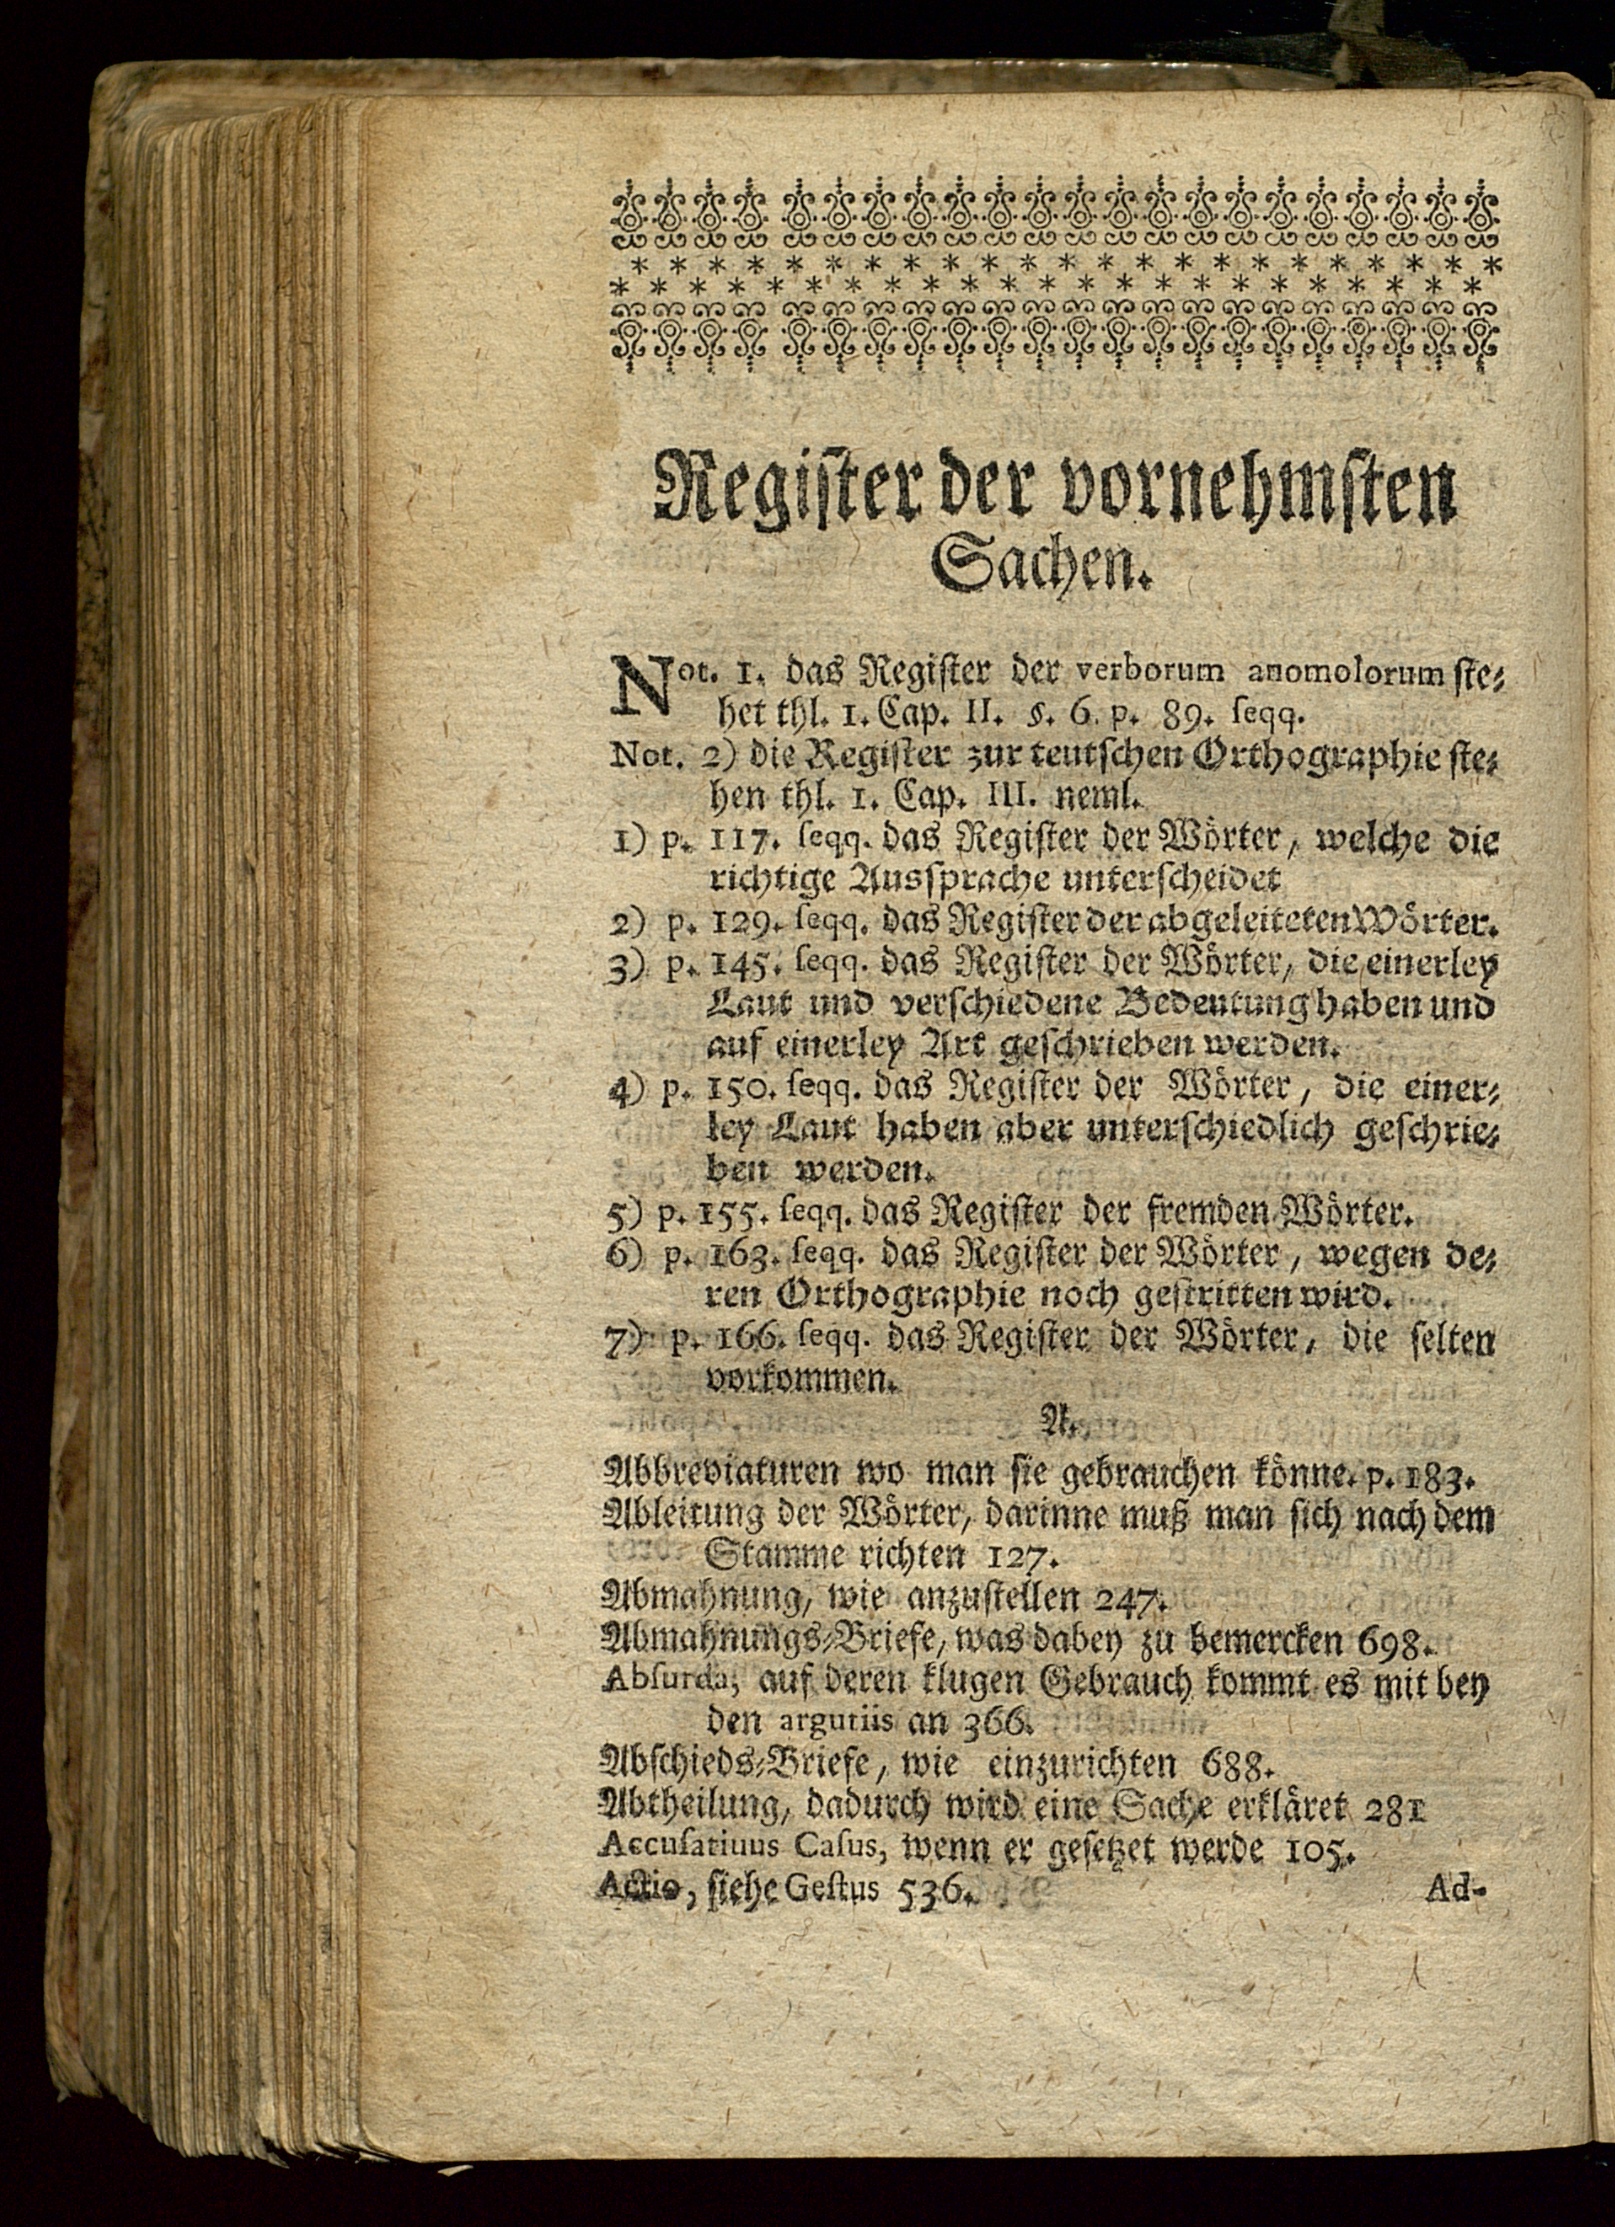 Regiſter der vornehmſten
Sachen.
Not. 1. das Regiſter der verborum anomolorum ſte⸗
het thl. 1. Cap. II. §. 6. p. 89. ſeqq.
Not. 2) die Regiſter zur teutſchen Orthographie ſte⸗
hen thl. 1. Cap. III. neml.
1) p. 117. ſeqq. das Regiſter der Wörter, welche die
richtige Ausſprache unterſcheidet
2) p. 129. ſeqq. das Regiſter der abgeleiteten Wörter.
3) p. 145. ſeqq. das Regiſter der Wörter, die einerley
Laut und verſchiedene Bedeutung haben und
auf einerley Art geſchrieben werden.
4) p. 150. ſeqq. das Regiſter der Wörter, die einer⸗
ley Laut haben aber unterſchiedlich geſchrie⸗
ben werden.
5) p. 155. ſeqq. das Regiſter der fremden Wörter.
6) p. 163. ſeqq. das Regiſter der Wörter, wegen de⸗
ren Orthographie noch geſtritten wird.
7) p. 166. ſeqq. das Regiſter der Wörter, die ſelten
vorkommen.
A.
Abbreviaturen wo man ſie gebrauchen könne. p. 183.
Ableitung der Wörter, darinne muß man ſich nach dem
Stamme richten 127.
Abmahnung, wie anzuſtellen 247.
Abmahnungs⸗Briefe, was dabey zu bemercken 698.
Abſurda, auf deren klugen Gebrauch kommt es mit bey
den argutiis an 366.
Abſchieds⸗Briefe, wie einzurichten 688.
Abtheilung, dadurch wird eine Sache erkläret 281
Accuſatiuus Caſus, wenn er geſetzet werde 105.
Actio, ſiehe Geſtus 536.
Ad-